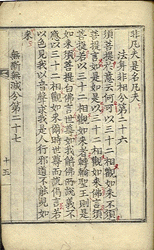 非凡夫是名凡夫
法身非相分第二十六
須菩提於意云何可以三十二相觀如來不須
菩提言如是如是以三十二相觀如來佛言須
菩提若以三十二相觀如來者轉輪聖王則是
如來須菩提白佛言世尊如我解佛所說義不
應以三十二相觀如來爾時世尊而說偈言若
以色見我以音聲求我是人行邪道不能見如
來
無斷無滅分第二十七